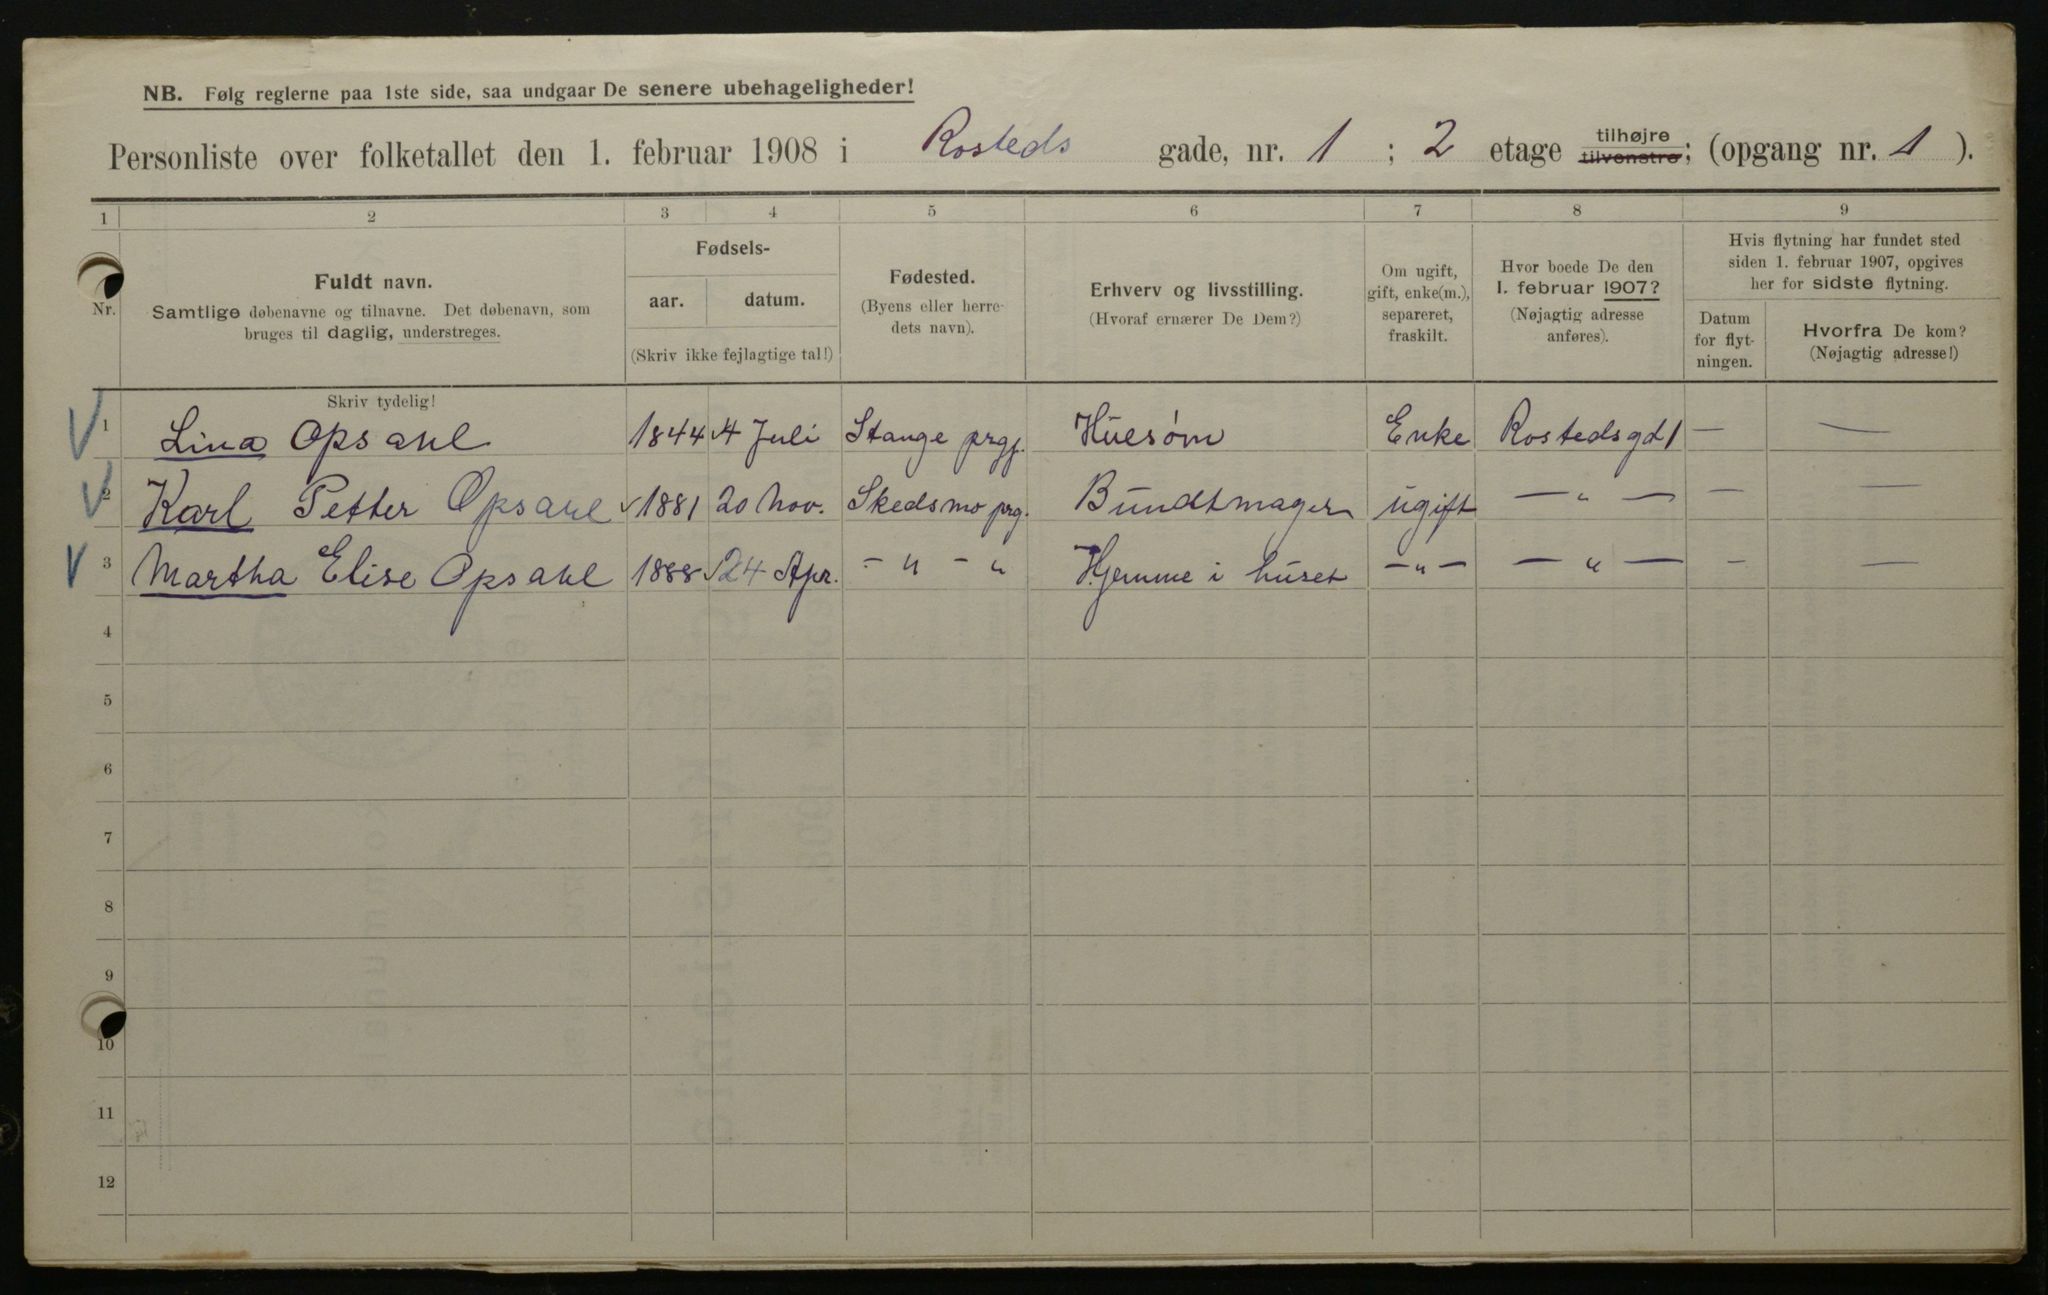 NB. Følg reglerne paa 1ste side, saa undgaar De senere ubehageligheder!
Personliste over folketallet den 1. februar 1908 i Rosteds gade, nr. 1 ; 2 etage tilhøjre tilvenstre; (opgang nr. 1 ).
1 2 3 4 5 6 7 8 9
Nr.
Fuldt navn.
Samtlige døbenavne og tilnavne. Det døbenavn, som
bruges til daglig, understreges.
Fødsels-
aar. datum.
(Skriv ikke fejlagtige tal!)
Fødested.
(Byens eller herre-
dets navn).
Erhverv og livsstilling.
(Hvoraf ernærer De Dem?)
Om ugift,
gift, enke(m.),
separeret,
fraskilt.
Hvor boede De den
1. februar 1907?
(Nøjagtig adresse
anføres).
Hvis flytning har fundet sted
siden 1. februar 1907, opgives
her for sidste flytning.
Datum
for flyt-
ningen.
Hvorfra De kom?
(Nøjagtig adresse!)
Skriv tydelig!
V 1 Lina Opsahl 1844 4 Juli Stange prgj. Huesøm Enke Rostedsgd 1 — —
V 2 Karl Petter Opsahl 1881 20 Nov. Skedsmo prg. Bundtmager ugift — " — — —
V 3 Martha Elise Opsahl 1888 24 Apr. — " — " Hjemme i huset — " — — " — — —
4
5
6
7
8
9
10
11
12